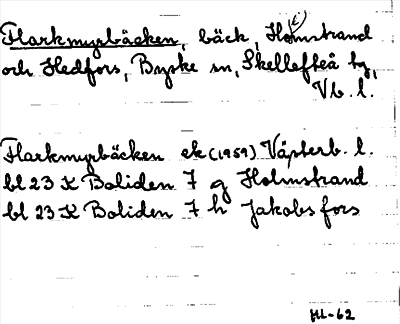 Flarkmyrbäcken, bäck, Holmstrand
och Hedfors, Byske sn, Skellefteå kg,
Vb. l.
Flarkmyrbäcken ek (1959) Västerb. l.
bl 23 K Boliden 7 g Holmstrand
bl 23 K Boliden 7 h Jakobsfors
HL-62